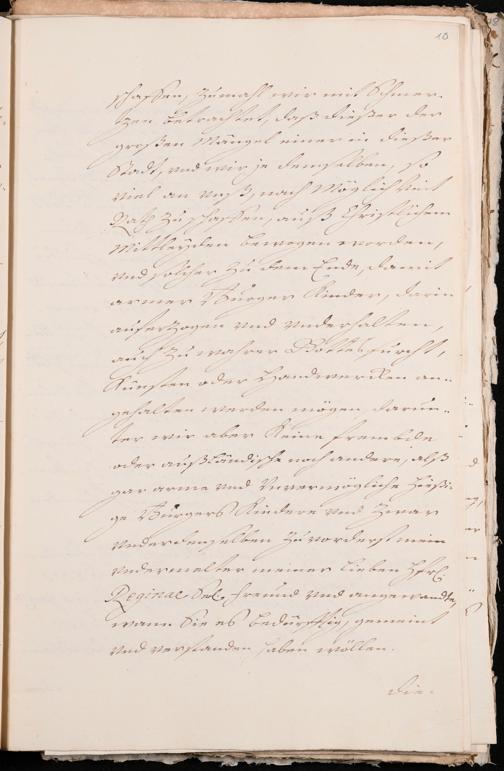 10
schaffen, zumahl wir mit Schmer-
zen betrachtet, daß dießer der
großen Mängel einer in dießer
Stadt, und wir je demselben, so
viel an unß, nach Möglichkeit
Rath zu schaffen, auß Christlichem
Mittleyden bewogen worden,
und solches zu dem Ende, damit
armer Burger Kinder, darin
auferzogen und underhalten,
auch zu wahrer Gottesfurcht,
Künsten oder Handwercken an-
gehalten werden mögen, darun-
ter wir aber keine frembde
oder außländische noch andere, alß
gar arme und Unvermögliche hießi-
ge Burgers Kindere und zwar
under denselben zu vorderst mein
und meiner lieben
Reginae Sel. freund und angewandte,
wann Sie es bedürfftig, gemeint
und verstanden haben wöllen.
die-